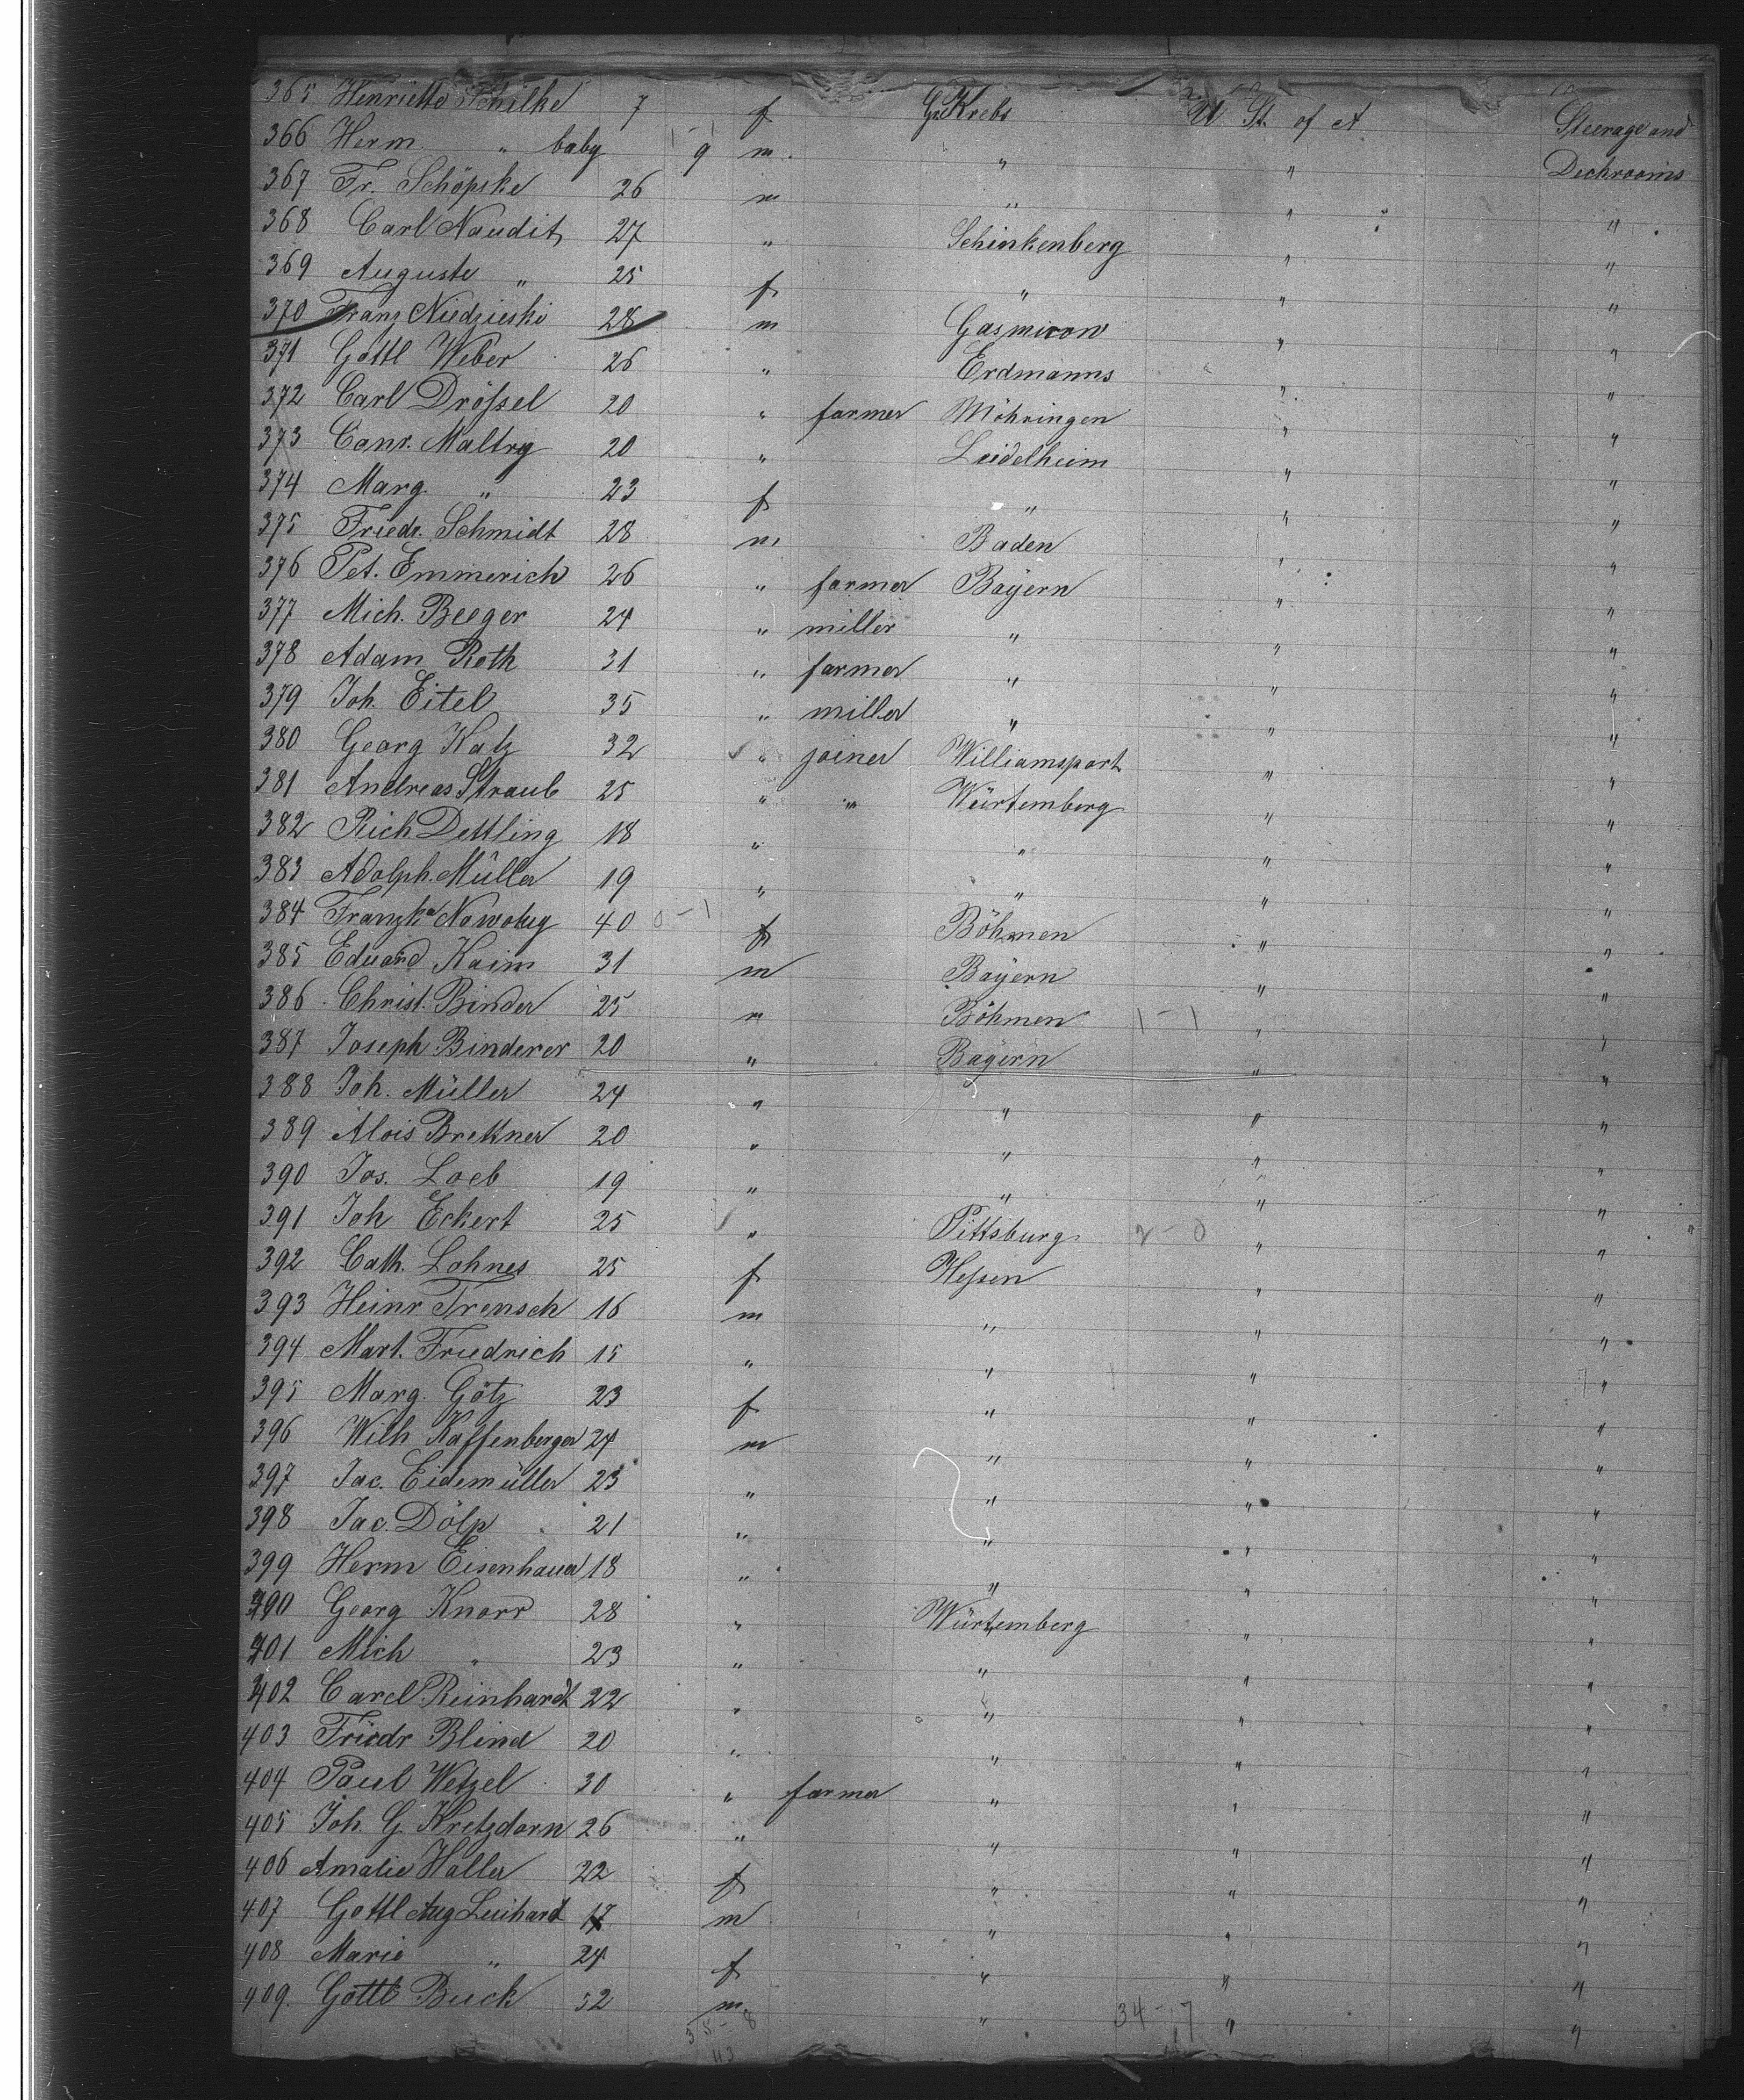 365 Henriette Schilke 7 f Gr. Krebs U St. of A Steerage and
366 Herm. " baby 9 m " " Deckrooms
367 Fr. Schöpske 26 m " " "
368 Carl Naudit 27 " Schinkenberg " "
369 Auguste " 25 f " " "
370 Franz Niedzieski 28 m Gasmirow " "
371 Gottl Weber 26 " Erdmanns " "
372 Carl Dröſsel 20 " farmer Möhringen " "
373 Conr. Maltry 20 " Leidelheim " "
374 Marg. " 23 f " " "
375 Friedr. Schmidt 28 m Baden " "
376 Pet. Emmerich 26 " farmer Bayern " "
377 Mich. Beeger 24 " miller " " "
378 Adam Roth 31 " farmer " " "
379 Joh. Eitel 35 " miller " " "
380 Georg Katz 32 " joiner Williamsport " "
381 Andreas Straub 25 " " Würtemberg " "
382 Rich Dettling 18 " " " "
383 Adolph. Müller 19 " " " "
384 Franzka Nowotny 40 0-1 f Böhmen " "
385 Eduard Kaim 31 m Bayern " "
386 Christ. Binder 25 " Böhmen 1-1 " "
387 Joseph Binderer 20 " Bayern " "
388 Joh. Müller 24 " " " "
389 Alois Brettner 20 " " " "
390 Jos. Loeb 19 " " " "
391 Joh Eckert 25 " Pittsburg 2-0 " "
392 Cath. Lohnes 25 f Heſsen " "
393 Heinr Trensch 16 m " " "
394 Mart. Friedrich 15 " " " "
395 Marg. Götz 23 f " " "
396 Wilh Kaffenberger 24 m " " "
397 Jac. Eidemüller 23 " " " "
398 Jac. Dölp 21 " " " "
399 Herm Eisenhauer 18 " " " "
400 Georg Knorr 28 " Würtemberg " "
401 Mich " 23 " " " "
402 Carl Reinhardt 22 " " " "
403 Friedr Blind 20 " " " "
404 Paul Wetzel 30 " farmer " " "
405 Joh. G Kretzdorn 26 " " " "
406 Amalie Haller 22 f " " "
407 Gottl Aug Leihard 17 m " " "
408 Marie " 24 f " " "
409. Gottl Buck 52 m " 34-7 " "
35-8
43